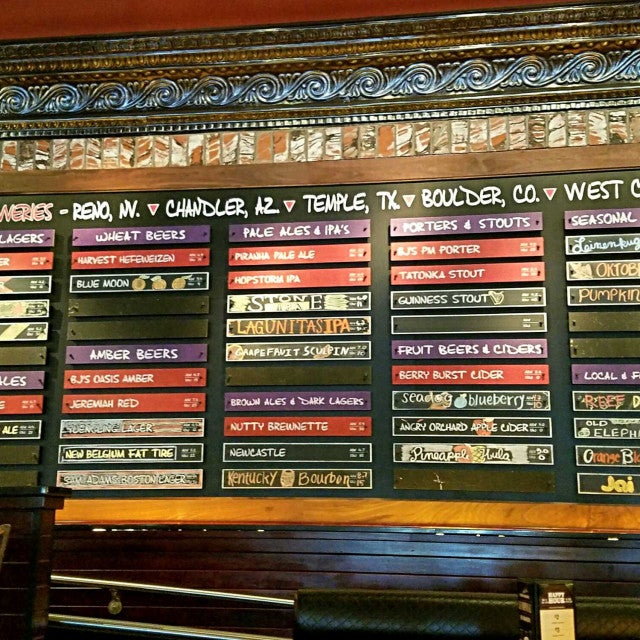 WERIES - RENO, NV. CHANDLER, AZ TEMPLE, TX. BOULDER, CO. WEST C
LAGERS
WHEAT BEERS
HARVEST HEFEWEIZEN
BLUE MOON
AMBER BEERS
BJ'S OASIS AMBER
JEREMIAH RED
YUENGLING LAGER
NEW BELGIUM FAT TIRE
SAM ADAMS BOSTON LAGER
PALE ALES & IPA'S
PIRANHA PALE ALE
HOPSTORM IPA
STONE IPA
LAGUNITAS IPA
GRAPEFRUIT SCULPIN
BROWN ALES & DARK LAGERS
NUTTY BREWNETTE
NEWCASTLE
Kentucky Bourbon
PORTERS & STOUTS
BJ'S PM PORTER
TATONKA STOUT
GUINNESS STOUT
FRUIT BEERS & CIDERS
BERRY BURST CIDER
seadog blueberry
ANGRY ORCHARD APPLE CIDER
Pineapple hula
SEASONAL
Leinenkug
OKTOB
PUMPKIN
LOCAL & F
REEF D
OLD ELEPH
Orange Bl
Jai
ALES
ALE
HAPPY HOUR